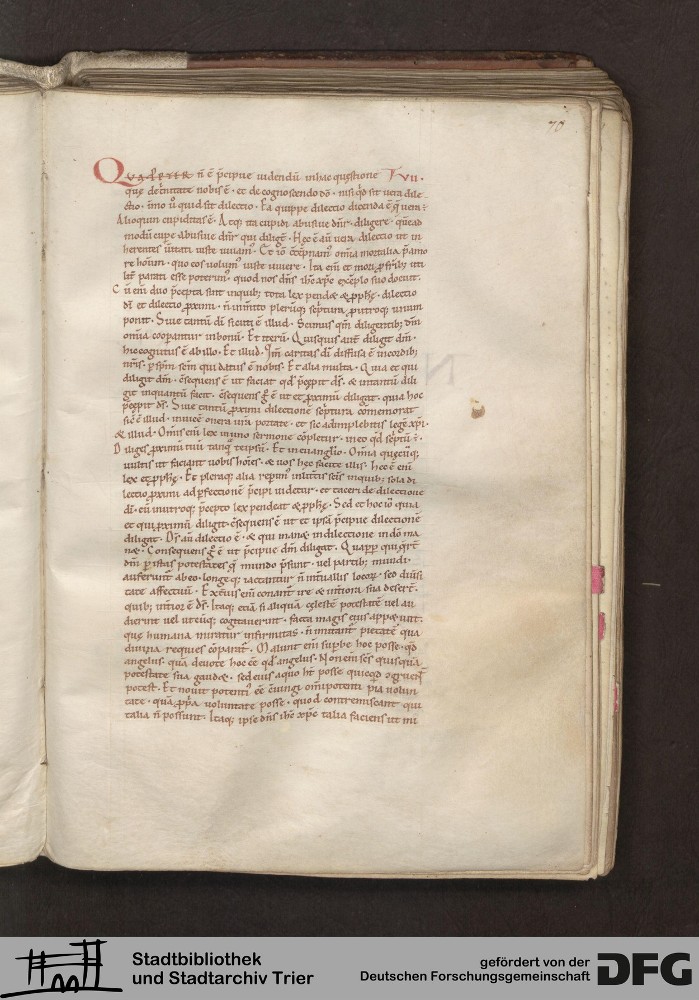 70
Quapropter ñ ẽ p̄cipue uidendũ inhac quęstione VII.
quę de t̃nitate nobis ẽ · et de cognoscendo dõ · nisi qđ sit uera dile
ctio · imo ů quid sit dilectio · Ea quippe dilectio dicenda ẽ q̃ uera ẽ ·
Alioquin cupiditas ẽ · Atq; ita cupidi abusiue dñr · diligere · quẽad
modũ cupe abusiue dñr qui diligt̃ · Hęc ẽ aut̃ uera dilectio ut in
herentes ũitati iuste uiuam᷒ · Et iõ cõtẽpnam᷒ omĩa mortalia p̃ amo
re hoĩum · quo eos uolum᷒ iuste uiuere · Ita eñi et mori ꝓ fr̃ib; uti
lit̃ parati esse poterim᷒ · quod nos dñs ihc xp̃c exẽplo suo docuit ·
Cũ eñi duo p̄cepta sint inquib; tota lex pendet & ꝓphę · dilectio
dĩ et dilectio ꝓximi · ñ inmĩto plerũq; sc̃ptura ꝓ utroq; unum
ponit · Siue tantũ dĩ sicuti ẽ illud · Scimus qm̃ diligentib; dm̃
omĩa coop̱antur inbonũ · Et iterũ · Quisquis aut̃ diligit dm̃ ·
hic cognitus ẽ ab illo · Et illud · Qm̃ caritas dĩ diffusa ẽ incordib;
nr̃is · p̱ sp̃m sc̃m qui datus ẽ nobis · Et alia multa · Quia et qui
diligit dm̃ · c̃sequens ẽ ut faciat qđ p̄cepit dš · & intantũ dili
git inquantũ facit · c̃sequens g̊ ẽ ut et ꝓximũ diligat · quia hoc
p̄cepit dš · Siue tantũ ꝓximi dilectionẽ sc̃ptura cõmemorat
sic ẽ illud · inuicẽ onera ur̃a portate · et sic adimplebitis legẽ xp̃i ·
& illud · Omĩs eñi lex inuno sermone cõpletur · in eo qđ sc̃ptũ ẽ ·
Diliges ꝓximũ tuũ tanq̃ teipsũ · Et in euanglio · Omĩa quęcũq;
uultis ut faciant uobis hoĩes · & uos hęc facite illis · hęc ẽ eñi
lex et ꝓphę · Et pleraq; alia rep̱im᷒ inlit̃is sc̃is inquib; sola di
lectio ꝓximi ad p̱fectionẽ p̄cipi uidetur · et taceri de dilectione
dĩ · cũ inutroq; p̄cepto lex pendeat & ꝓphę · Sed et hoc iõ quia
et qui ꝓximũ diligit · c̃sequens ẽ ut et ipsã p̄cipue dilectionẽ
diligat · Dš aut̃ dilectio ẽ · & qui manet indilectione indõ ma
net · Consequens g̊ ẽ ut p̄cipue dm̃ diligat · Quapp̱ qui qrt̃
dm̃ p̱ istas potestates q̃ mundo p̃sunt · uel partib; mundi ·
auferunt̃ ab eo · longeq; iactantur ñ int̃uallis locoꝝ · sed diũsi
tate affectuũ · Exteri᷒ eñi conant̃ ire & intiora sua desert̃ ·
quib; int̃ior ẽ dš · Itaq; etiã si aliquã celestẽ potestatẽ uel au
dierint uel utcũq; cogitauerint · facta magis ei᷒ appetunt ·
quę humana miratur infirmitas · ñ imitant̃ pietatẽ qua
diuina requies cõparat̃ · Malunt eñi supbe hoc posse · qđ
angelus · quã deuote hoc ẽe qđ angelus · Non eñi sc̃s quisquã
potestate sua gaudet · sed ei᷒ a quo ht̃ posse quicqđ congruent̃
potest · Et nouit potenti᷒ ẽe c̃iungi omĩpotenti pia volun
tate · quã ꝓp̃a uoluntate posse · quod contremiscant qui
talia ñ possunt · Itaq; ipse dñs ihc xp̃c talia faciens ut mi
Stadtbibliothek
und Stadtarchiv Trier
gefördert von der
Deutschen Forschungsgemeinschaft
DFG